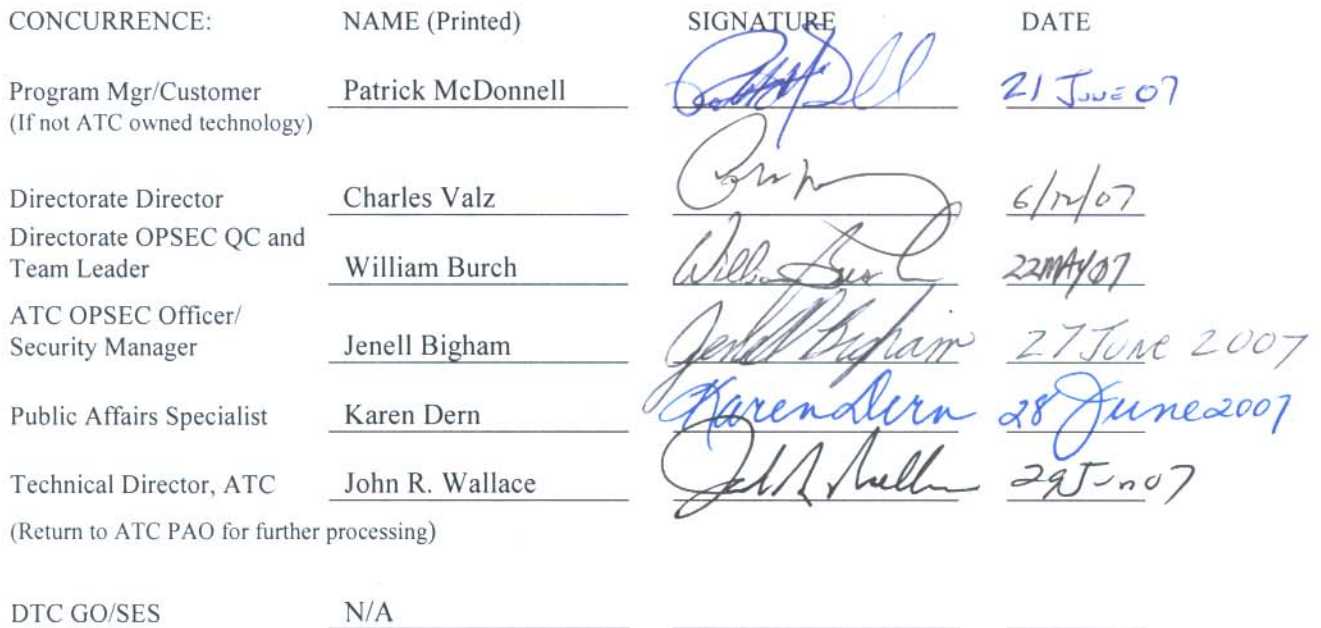 CONCURRENCE: NAME (Printed) SIGNATURE DATE
Program Mgr/Customer Patrick McDonnell 21 June 07
(If not ATC owned technology)
Directorate Director Charles Valz 6/12/07
Directorate OPSEC QC and
Team Leader William Burch William Burch 22MAY07
ATC OPSEC Officer/
Security Manager Jenell Bigham Jenell Bigham 27 June 2007
Public Affairs Specialist Karen Dern Karen Dern 28 June 2007
Technical Director, ATC John R. Wallace 29Jun07
(Return to ATC PAO for further processing)
DTC GO/SES N/A